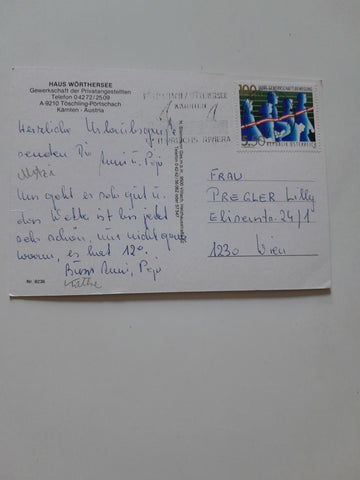 HAUS WÖRTHERSEE
Gewerkschaft der Privatangestellten
Telefon 04272/2509
A-9210 Töschling-Pörtschach
Kärnten - Austria
WÖRTHERSEE
KÄRNTEN
ÖSTERREICHS RIVIERA
100 JAHRE GEWERKSCHAFTSBEWEGUNG
5.50 REPUBLIK ÖSTERREICH
Herzliche Urlaubsgrüße
senden Dir Anni u. Pepi
Uns geht es sehr gut u.
das Wetter ist bis jetzt
sehr schön, nur nicht ganz
warm, es hat 12°.
Bussi Anni, Pepi
FRAU
PREGLER Lilly
Elisenstr. 24/1
1230 Wien
Nr. 8236